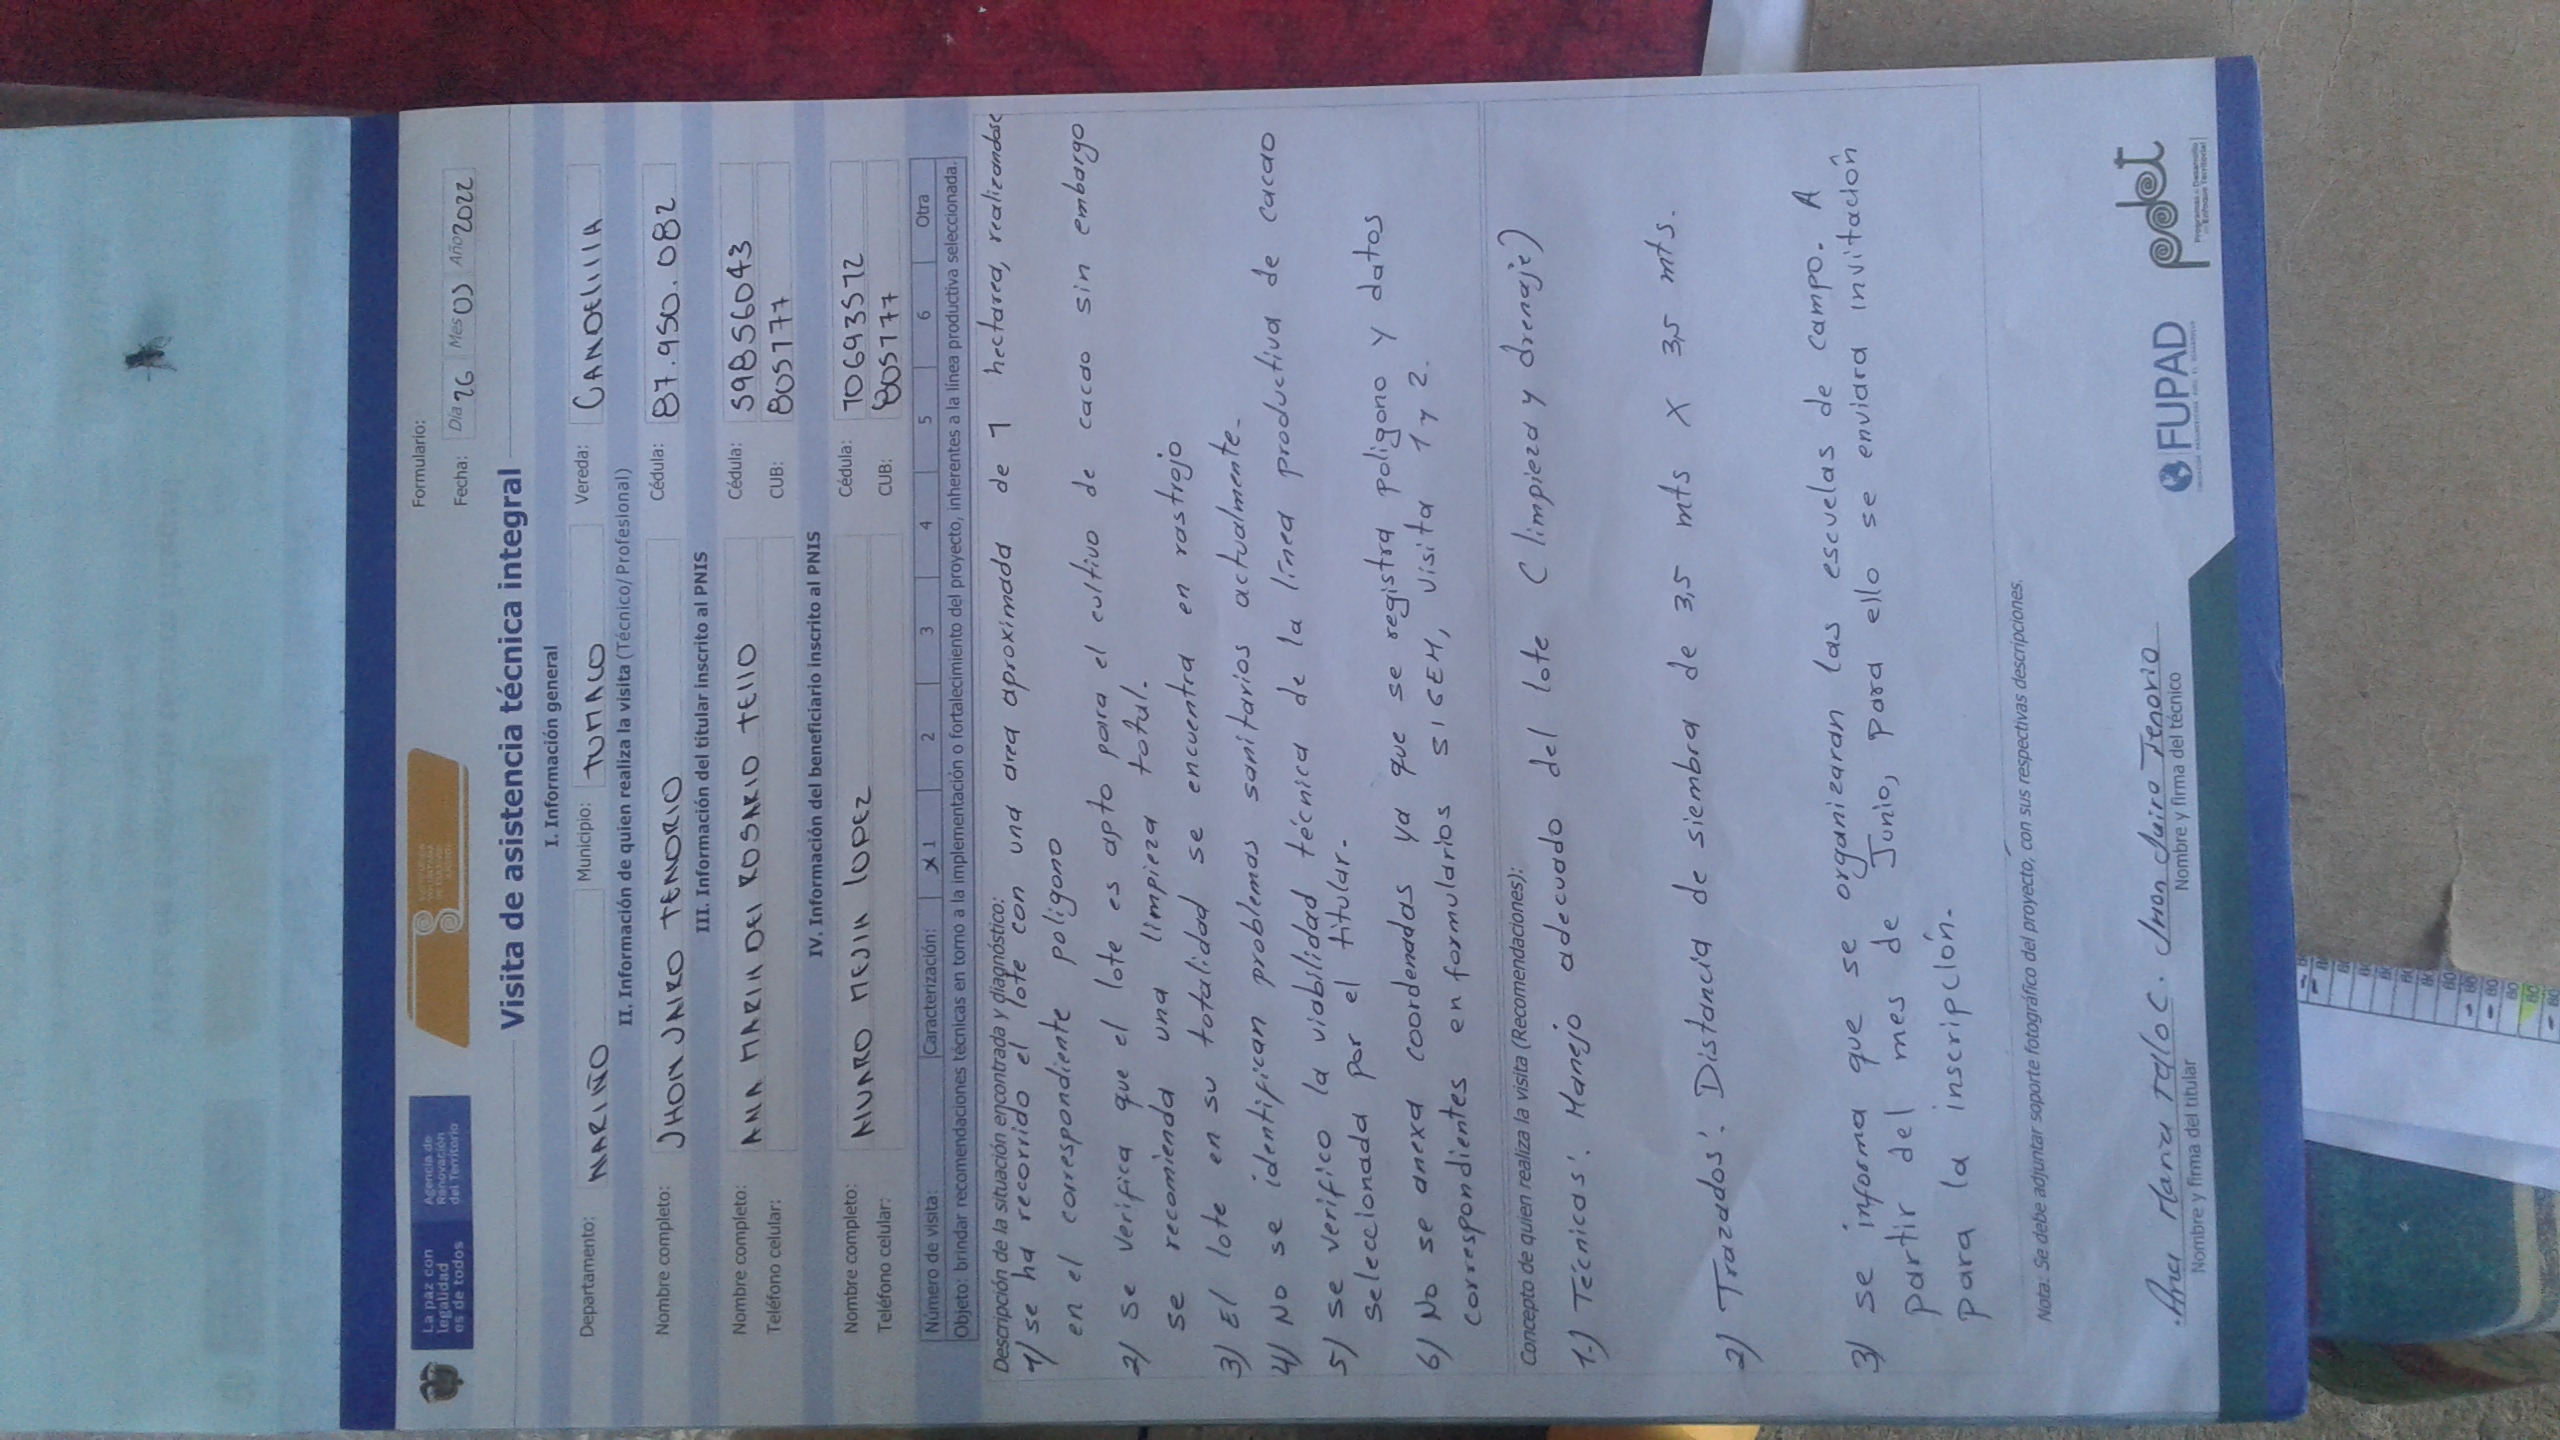 La paz con
legalidad
es de todos
Agencia de
Renovación
del Territorio
Formulario:
Fecha: Día 26 Mes 03 Año 2022
Visita de asistencia técnica integral
I. Información general
Departamento: NARIÑO Municipio: TUMACO Vereda: CANDELILLA
II. Información de quien realiza la visita (Técnico/Profesional)
Nombre completo: JHON JAIRO TENORIO Cédula: 87.950.082
III. Información del titular inscrito al PNIS
Nombre completo: ANA MARIA DEL ROSARIO TELLO Cédula: 59856043
Teléfono celular: CUB: 805177
IV. Información del beneficiario inscrito al PNIS
Nombre completo: ALVARO MEJIA LOPEZ Cédula: 10693572
Teléfono celular: CUB: 805177
Número de visita: Caracterización: X 1 2 3 4 5 6 Otra
Objeto: brindar recomendaciones técnicas en torno a la implementación o fortalecimiento del proyecto, inherentes a la línea productiva seleccionada.
Descripción de la situación encontrada y diagnóstico:
1) se ha recorrido el lote con una area aproximada de 1 hectarea, realizandose
en el correspondiente poligono
2) se verifica que el lote es apto para el cultivo de cacao sin embargo
se recomienda una limpieza total.
3) El lote en su totalidad se encuentra en rastrojo
4) No se identifican problemas sanitarios actualmente.
5) se verifico la viabilidad técnica de la línea productiva de cacao
seleccionada por el titular.
6) No se anexa coordenadas ya que se registra poligono y datos
correspondientes en formularios SIGEM, visita 1 y 2.
Concepto de quien realiza la visita (Recomendaciones):
1.) Técnicas: Manejo adecuado del lote (limpieza y drenaje)
2) Trazados: Distancia de siembra de 3,5 mts X 3,5 mts.
3) se informa que se organizaran las escuelas de campo. A
partir del mes de Junio, para ello se enviara invitación
para la inscripción.
Nota: Se debe adjuntar soporte fotográfico del proyecto, con sus respectivas descripciones.
Ana Maria Tello C. Jhon Jairo Tenorio
Nombre y firma del titular Nombre y firma del técnico
FUPAD
pdet
Programas de Desarrollo
con Enfoque Territorial